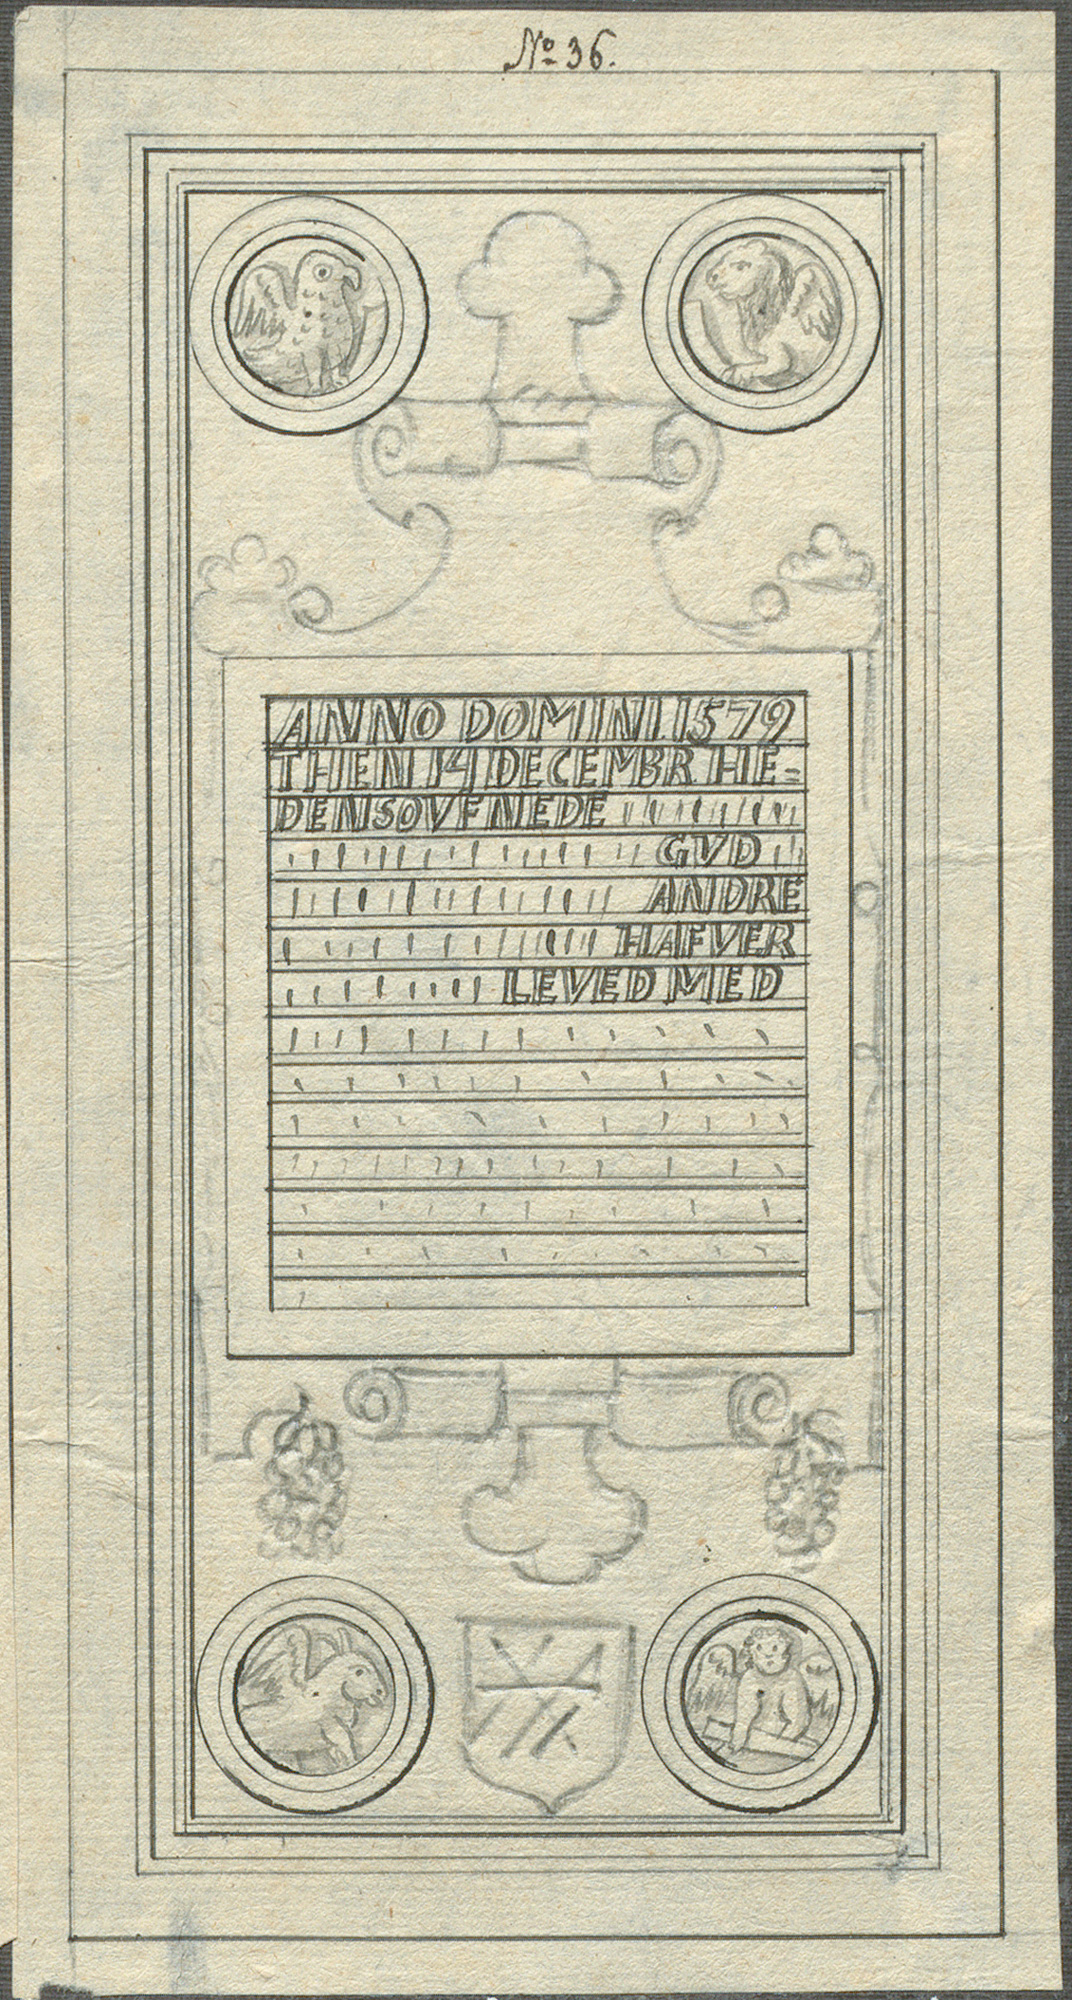 No 36.
ANNO DOMINI. 1579
THEN 14 DECEMBR HE=
DENSOVF NEDE
GVD
ANDRE
HAFVER
LEVED MED